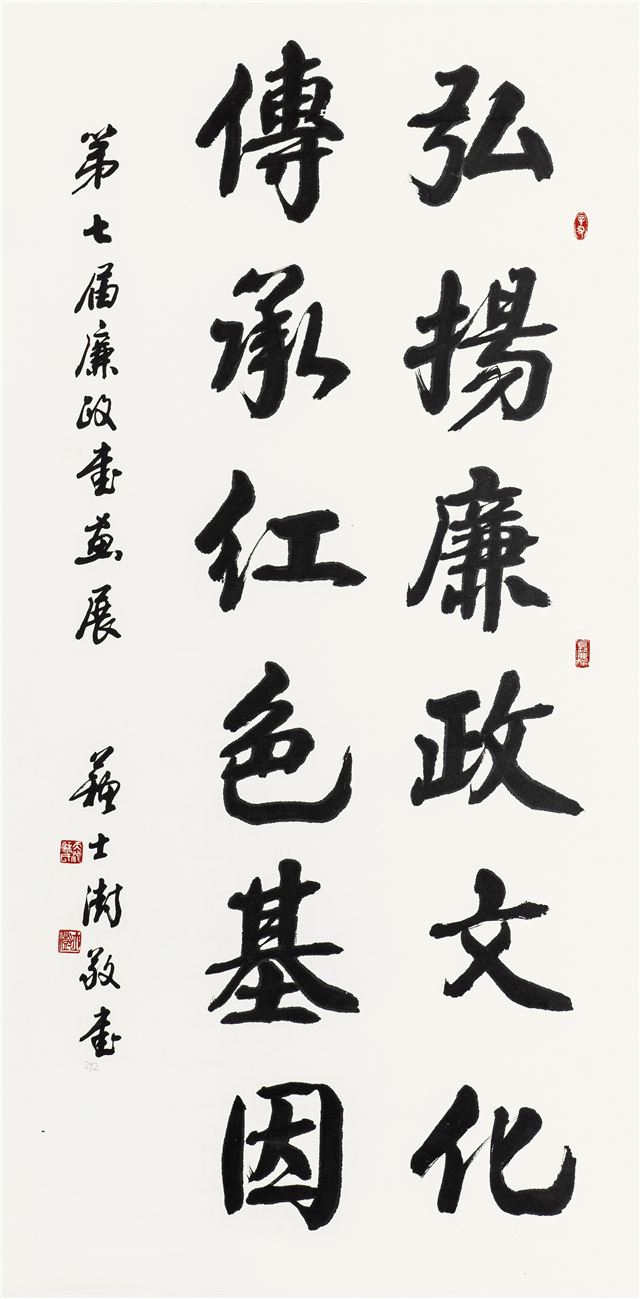 弘揚廉政文化
傳承红色基因
第七届廉政書畫展 蘇士澍敬書
392